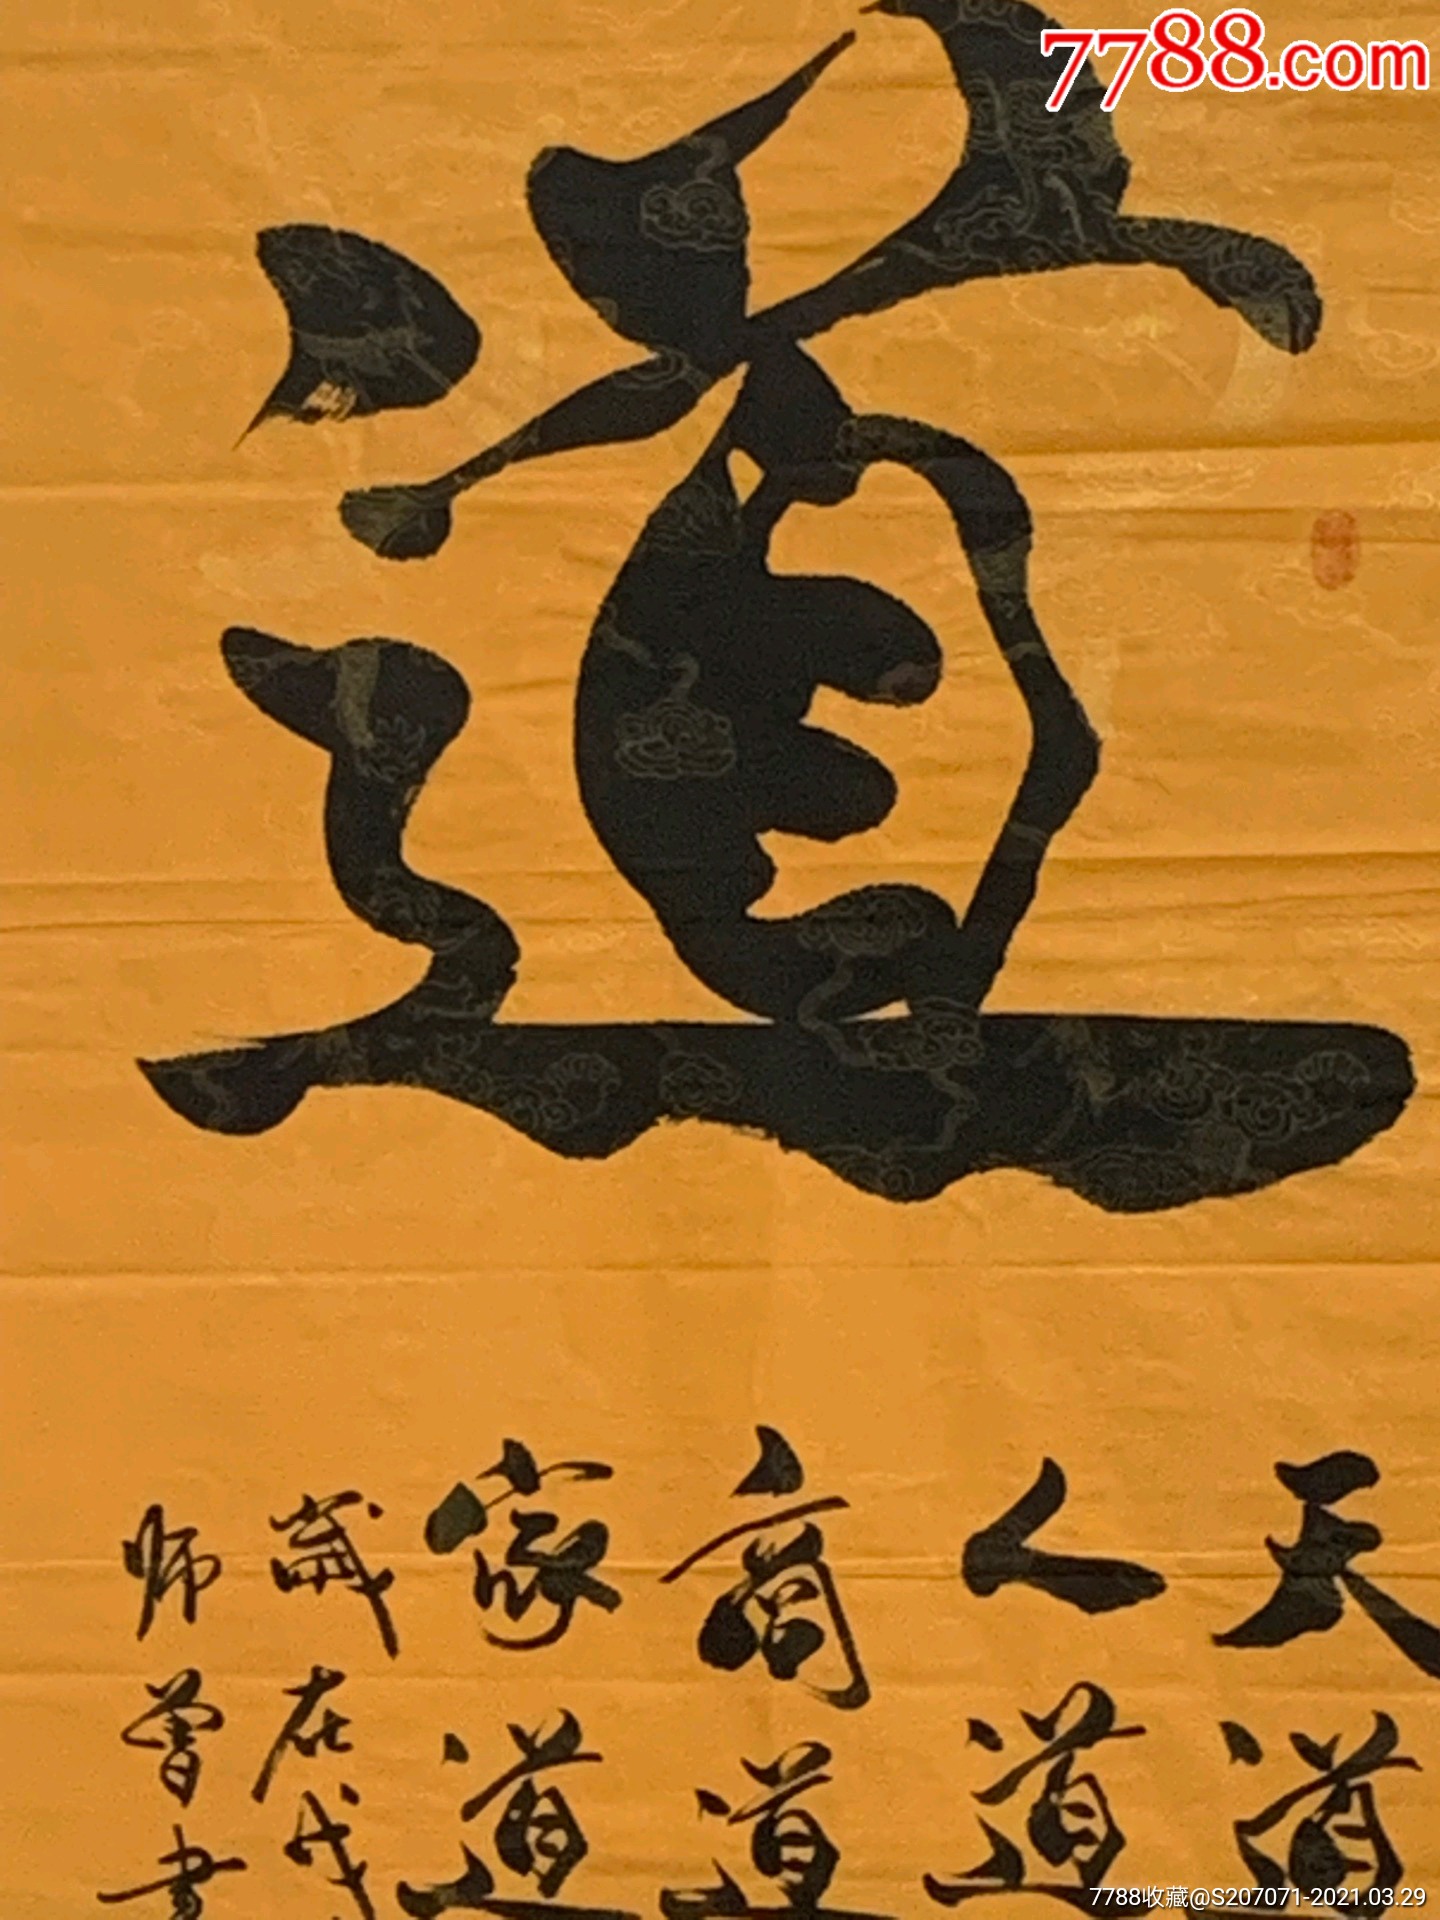 7788.com
道
天道
人道
商道
家道
歲在戊
師曾書
7788收藏@S207071-2021.03.29